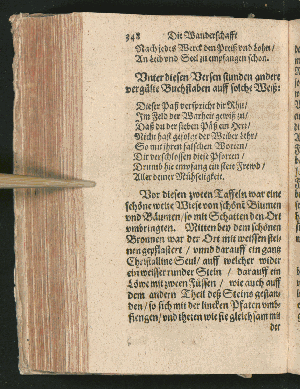 348 Die Wanderschafft
Nach jedes Werck den Preiß und Lohn /
An Leib und Seel zu empfangen schon.
Unter diesen Versen stunden andere
vergülte Buchstaben auff solche Weiß:
Dieser Paß verspricht dir Ruh /
Im Feld der Warheit gewiß zu /
Daß du der sieben Päß ein Herr /
Nicht hast gefolget der Weiber Lehr /
So mit ihren falschen Worten /
Dir verschlossen diese Pforten /
Drumb hie empfang ein stete Frewd /
Aller deiner Mühseligkeit.
Vor diesen zweien Taffeln war eine
schöne weite Wiese von schönē Blumen
und Bäumen / so mit Schatten den Ort
umbringten. Mitten bey dem schönen
Bronnen war der Ort mit weissen stei-
nen gepflastert / und darauff ein gantz
Christalline Seul / auff welcher wider
ein weisser runder Stein / darauff ein
Löwe mit zween Füssen / wie auch auff
dem andern Theil deß Steins gestan-
den / so sich mit der lincken Pfaten umb-
fiengen / und theten wie sie gleichsam mit
der